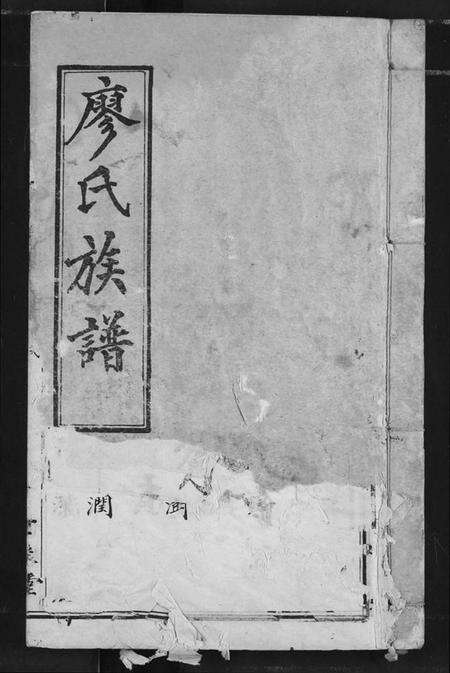 廖氏族譜
潤